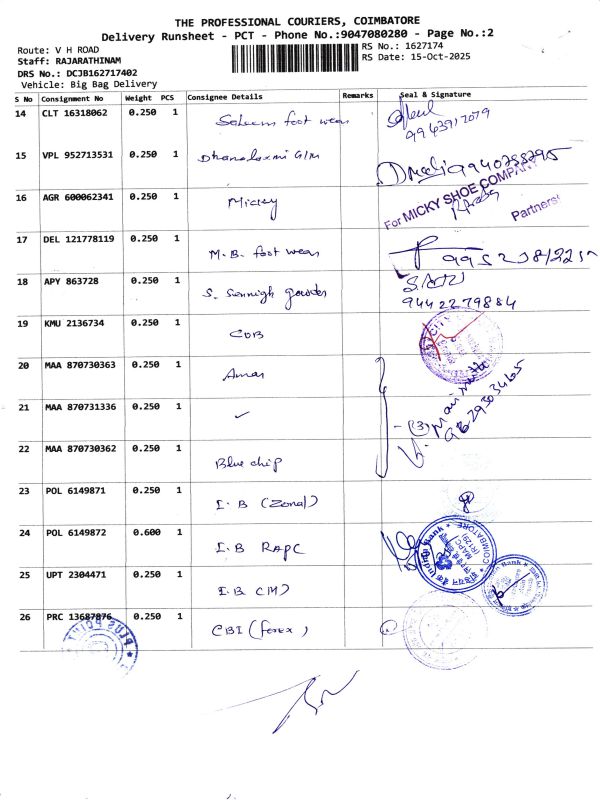 THE PROFESSIONAL COURIERS, COIMBATORE
Delivery Runsheet - PCT - Phone No.:9047080280 - Page No.:2
Route: V H ROAD
Staff: RAJARATHINAM
DRS No.: DCJB162717402
Vehicle: Big Bag Delivery
RS No.: 1627174
RS Date: 15-Oct-2025
S No Consignment No Weight PCS Consignee Details Remarks Seal & Signature
14 CLT 16318062 0.250 1 Saleem foot wear
9943917079
15 VPL 952713531 0.250 1 Dhanalaxmi G/M
16 AGR 600062341 0.250 1 Micky
For MICKY SHOE COMPANY
Partners
17 DEL 121778119 0.250 1 M.B. foot wear
18 APY 863728 0.250 1 S.
9442279884
19 KMU 2136734 0.250 1 CUB
20 MAA 870730363 0.250 1 Amar
21 MAA 870731336 0.250 1 ✓
(3)
9629503465
22 MAA 870730362 0.250 1 Blue chip
23 POL 6149871 0.250 1 I.B (Zonal)
24 POL 6149872 0.600 1 I.B RAPC
Indian Bank
COIMBATORE
25 UPT 2304471 0.250 1 I.B (M)
26 PRC 13687876 0.250 1 CBI (forex)
PLUS POINT